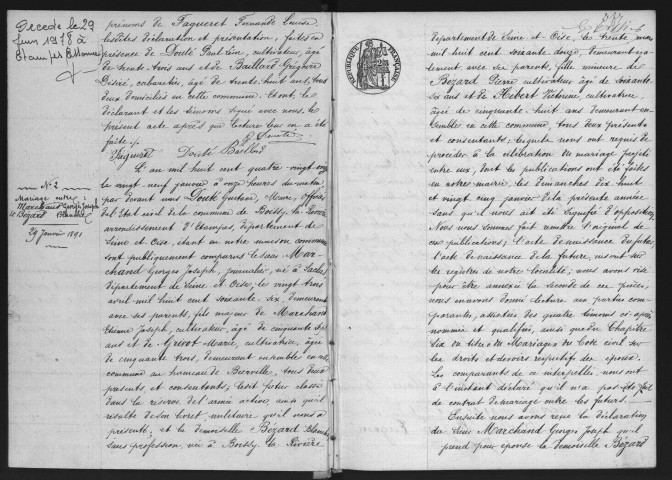 Décédé le 29
Juin 1978 à
Etampes Essonne
prénoms de Paqueret Fernande Louise
lesdites déclaration et présentation, faites en
présence de Doulé Paul Léon, cultivateur, âgé
de trente trois ans et de Baillard Grégoire
Désiré, cabaretier, âgé de trente huit ans, tous
deux domiciliés en cette commune. Et ont, le
déclarant et les témoins signé avec nous le
présent acte après que lecture leur en a été
faite
Paqueret Baillard
N° 2
Mariage entre
Marchand Georges Joseph
et Bézard Blanche
29 Janvier 1891
L'an mil huit cent quatre vingt onze
le vingt neuf janvier à onze heures du matin
par devant nous Gustave, Maire, officier
de l'Etat civil de la commune de Boissy la Rivière
arrondissement d'Etampes, département de
Seine et Oise, étant en notre maison commune
sont publiquement comparus le sieur Mar-
chand Georges Joseph, journalier, né à Saclas
département de Seine et Oise, le vingt trois
avril mil huit cent soixante six, demeurant
avec ses parents, fils majeur de Marchand
Etienne Joseph, cultivateur, âgé de cinquante sept
ans et de Marie, cultivatrice, âgée
de cinquante trois, demeurant ensemble en cette
commune au hameau de Bierville, tous deux
présents et consentants; ledit futur classé
dans la réserve de l'armée active, ainsi qu'il
résulte de son livret militaire qu'il nous a
présenté; et la demoiselle Bézard Blanche
sans profession, née à Boissy la Rivière
RÉPUBLIQUE FRANÇAISE
département de Seine et Oise, le trente mai
mil huit cent soixante douze, demeurant éga-
lement avec ses parents, fille mineure de
Bézard Pierre cultivateur âgé de soixante
six ans et de Hébert Victorine, cultivatrice,
âgée de cinquante huit ans demeurant en-
semble en cette commune, tous deux présents
et consentants; lesquels nous ont requis de
procéder à la célébration du mariage projeté
entre eux, dont les publications ont été faites
en notre mairie, les dimanches dix huit
et vingt cinq janvier de la présente année
sans qu'il nous ait été signifié d'opposition.
Nous nous sommes fait remettre l'original de
ces publications; l'acte de naissance du futur,
l'acte de naissance de la future, inscrit sur
le registre de notre localité; nous avons visé
pour être annexée la seconde de ces pièces,
nous en avons donné lecture aux parties com-
parantes, assistées des quatre témoins ci-après
nommés et qualifiés, ainsi que du Chapitre
six du titre du Mariage du Code civil sur
les droits et devoirs respectifs des époux.
Les comparants de ce interpellés, nous ont
à l'instant déclaré qu'il n'a pas été fait
de contrat de mariage entre les futurs.
Ensuite nous avons reçu la déclaration
du sieur Marchand Georges Joseph qu'il
prend pour épouse la demoiselle Bézard